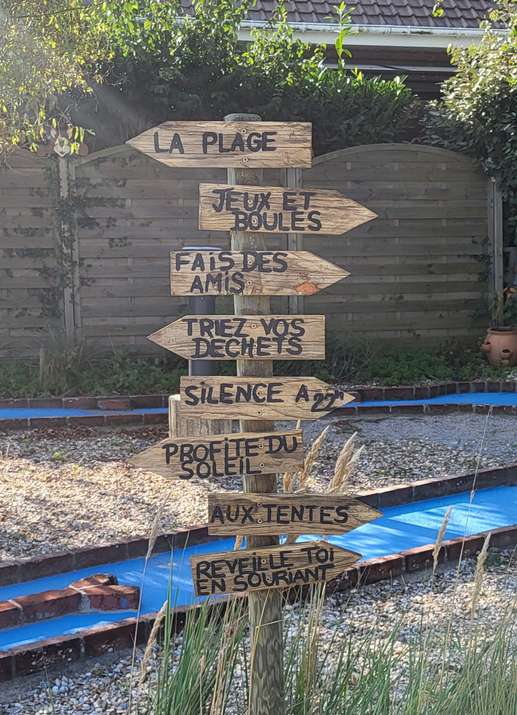 LA PLAGE
JEUX ET
BOULES
FAIS DES
AMIS
TRIEZ VOS
DECHETS
SILENCE A 22H
PROFITE DU
SOLEIL
AUX TENTES
REVEILLE TOI
EN SOURIANT